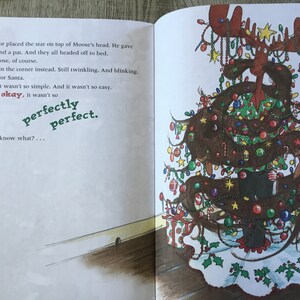 placed the star on top of Moose's head. He gave
and a pat. And they all headed off to bed,
of course.
the corner instead. Still twinkling. And blinking.
for Santa.
wasn't so simple. And it wasn't so easy.
okay, it wasn't so
perfectly
perfect.
know what? . . .